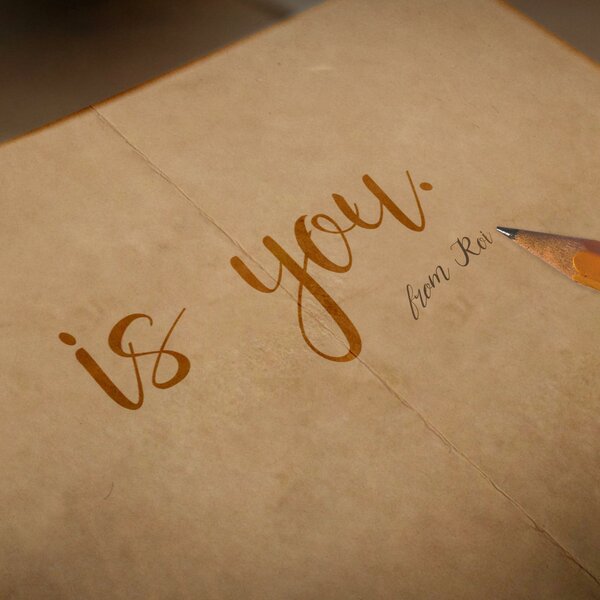 is you.
from Roi